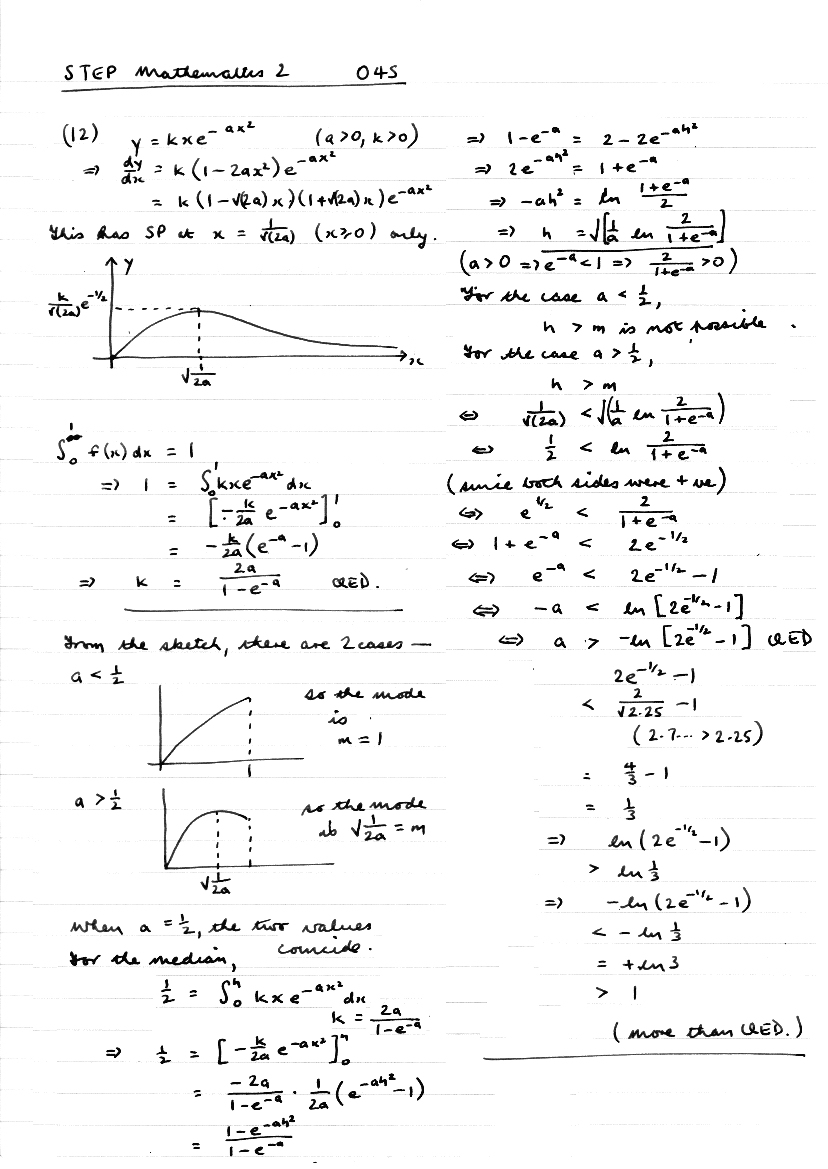 STEP Mathematics 2 04S
(12) y = kxe^{-ax²} (a>0, k>0)
⇒ dy/dx = k(1-2ax²)e^{-ax²}
= k(1-√(2a)x)(1+√(2a)x)e^{-ax²}
This has SP at x = 1/√(2a) (x≥0) only.
y
k/√(2a) e^{-1/2}
x
√1/2a
∫₀¹ f(x) dx = 1
⇒ 1 = ∫₀¹ kxe^{-ax²} dx
= [-k/2a e^{-ax²}]₀¹
= -k/2a (e^{-a} -1)
⇒ k = 2a/(1-e^{-a}) QED.
From the sketch, there are 2 cases —
a < 1/2
so the mode
is
m = 1
1
a > 1/2
so the mode
is √1/2a = m
√1/2a
When a = 1/2, the two values
coincide.
For the median,
1/2 = ∫₀ʰ kxe^{-ax²} dx
k = 2a/(1-e^{-a})
⇒ 1/2 = [-k/2a e^{-ax²}]₀ʰ
= -2a/(1-e^{-a}) · 1/2a (e^{-ah²} -1)
= (1-e^{-ah²})/(1-e^{-a})
⇒ 1-e^{-a} = 2-2e^{-ah²}
⇒ 2e^{-ah²} = 1+e^{-a}
⇒ -ah² = ln (1+e^{-a})/2
⇒ h = √[1/a ln 2/(1+e^{-a})]
(a>0 ⇒ e^{-a}<1 ⇒ 2/(1+e^{-a}) > 0)
For the case a < 1/2,
h > m is not possible.
For the case a > 1/2,
h > m
⇔ 1/√(2a) < √(1/a ln 2/(1+e^{-a}))
⇔ 1/2 < ln 2/(1+e^{-a})
(since both sides were +ve)
⇔ e^{1/2} < 2/(1+e^{-a})
⇔ 1+e^{-a} < 2e^{-1/2}
⇔ e^{-a} < 2e^{-1/2} -1
⇔ -a < ln [2e^{-1/2} -1]
⇔ a > -ln [2e^{-1/2} -1] QED
2e^{-1/2} -1
< 2/√2.25 -1
(2.7... > 2.25)
= 4/3 -1
= 1/3
⇒ ln (2e^{-1/2} -1)
> ln 1/3
⇒ -ln (2e^{-1/2} -1)
< -ln 1/3
= +ln 3
> 1
(more than QED.)